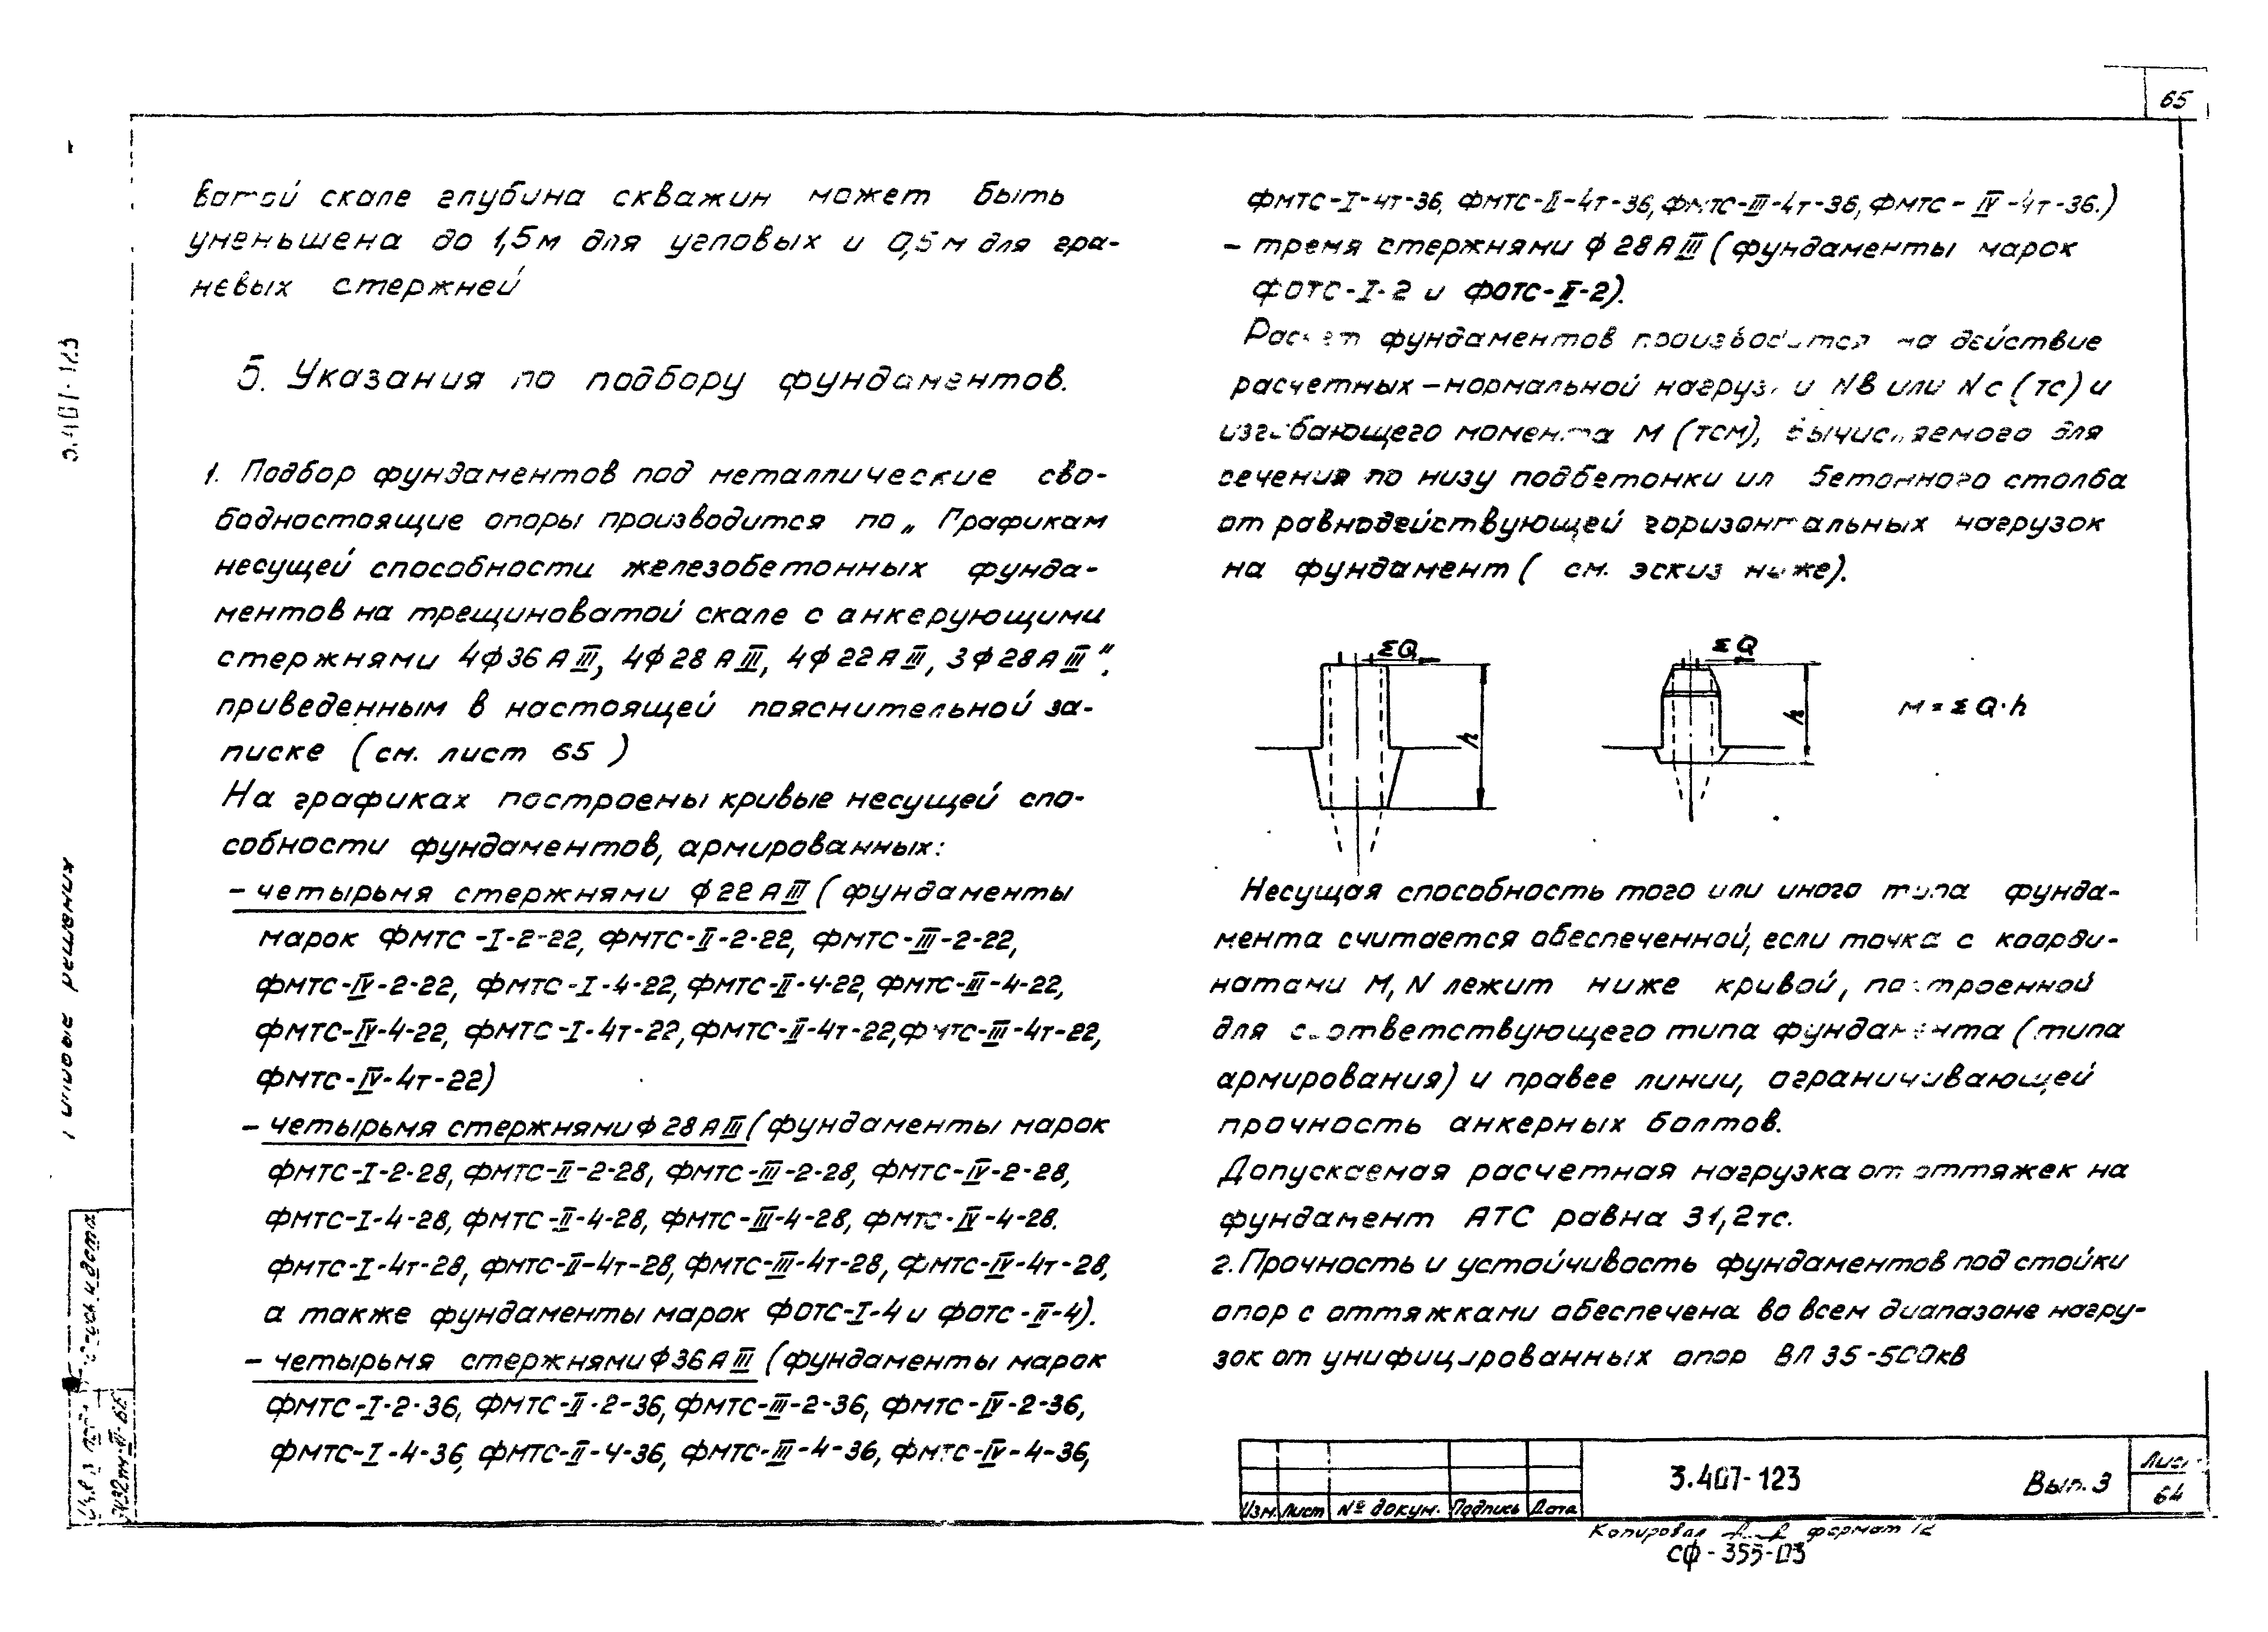 65
ватой скале глубина скважин может быть
уменьшена до 1,5м для угловых и 0,5м для гра-
невых стержней
5. Указания по подбору фундаментов.
1. Подбор фундаментов под металлические сво-
бодностоящие опоры производится по „Графикам
несущей способности железобетонных фунда-
ментов на трещиноватой скале с анкерующими
стержнями 4ф36АIII, 4ф28АIII, 4ф22АIII, 3ф28АIII",
приведенным в настоящей пояснительной за-
писке (см. лист 65)
На графиках построены кривые несущей спо-
собности фундаментов, армированных:
- четырьмя стержнями ф22АIII (фундаменты
марок ФМТС-I-2-22, ФМТС-II-2-22, ФМТС-III-2-22,
ФМТС-IV-2-22, ФМТС-I-4-22, ФМТС-II-4-22, ФМТС-III-4-22,
ФМТС-IV-4-22, ФМТС-I-4т-22, ФМТС-II-4т-22, ФМТС-III-4т-22,
ФМТС-IV-4т-22)
- четырьмя стержнями ф28АIII (фундаменты марок
ФМТС-I-2-28, ФМТС-II-2-28, ФМТС-III-2-28, ФМТС-IV-2-28,
ФМТС-I-4-28, ФМТС-II-4-28, ФМТС-III-4-28, ФМТС-IV-4-28.
ФМТС-I-4т-28, ФМТС-II-4т-28, ФМТС-III-4т-28, ФМТС-IV-4т-28,
а также фундаменты марок ФОТС-I-4 и ФОТС-II-4).
- четырьмя стержнями ф36АIII (фундаменты марок
ФМТС-I-2-36, ФМТС-II-2-36, ФМТС-III-2-36, ФМТС-IV-2-36,
ФМТС-I-4-36, ФМТС-II-4-36, ФМТС-III-4-36, ФМТС-IV-4-36,
ФМТС-I-4т-36, ФМТС-II-4т-36, ФМТС-III-4т-36, ФМТС-IV-4т-36.)
- тремя стержнями ф28АIII (фундаменты марок
ФОТС-I-2 и ФОТС-II-2).
Расчет фундаментов производится на действие
расчетных - нормальной нагрузки Nв или Nс (тс) и
изгибающего момента М (тсм), вычисляемого для
сечения по низу подбетонки или бетонного столба
от равнодействующей горизонтальных нагрузок
на фундамент (см. эскиз ниже).
ΣQ
h
ΣQ
h
М = ΣQ·h
Несущая способность того или иного типа фунда-
мента считается обеспеченной, если точка с коорди-
натами М, N лежит ниже кривой, построенной
для соответствующего типа фундамента (типа
армирования) и правее линии, ограничивающей
прочность анкерных болтов.
Допускаемая расчетная нагрузка от оттяжек на
фундамент АТС равна 31,2тс.
2. Прочность и устойчивость фундаментов под стойки
опор с оттяжками обеспечена во всем диапазоне нагру-
зок от унифицированных опор ВЛ 35-500кВ
Изм. Лист № докум. Подпись Дата
3.407-123 Вып. 3
Лист
64
Копировал формат 12
СФ-355-03
3.407-123
Типовые решения